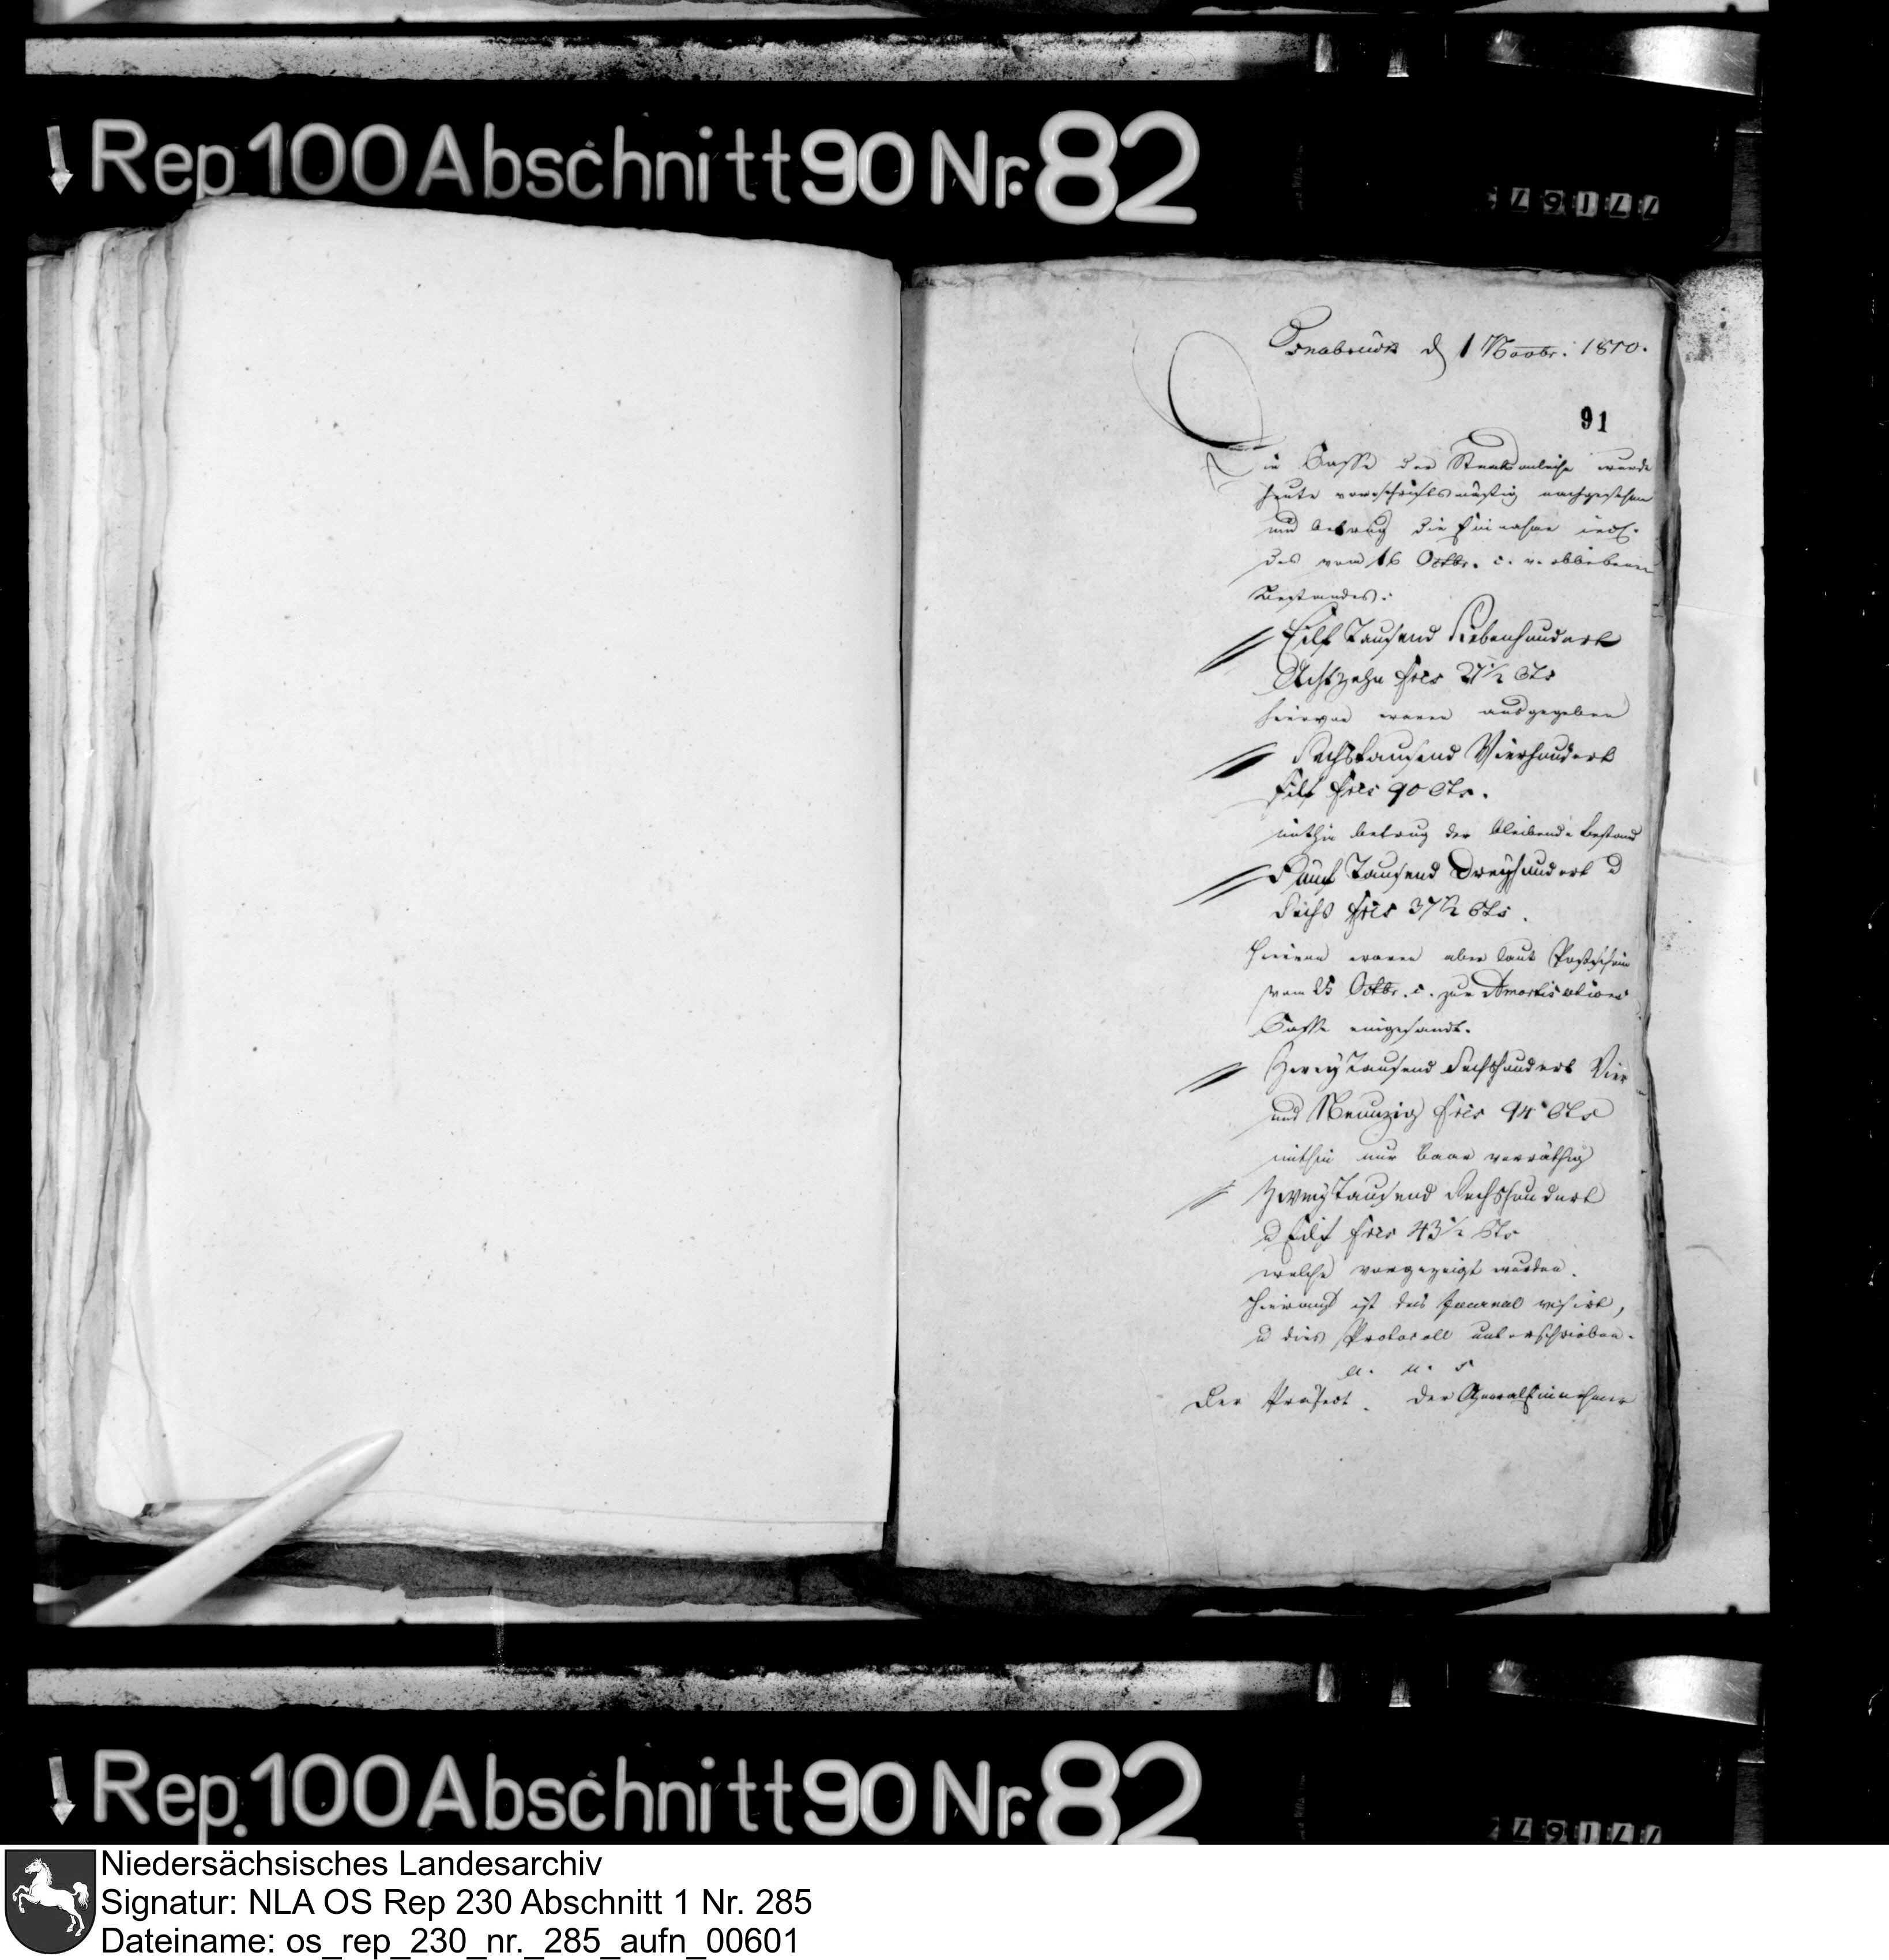 Rep 100 Abschnitt 90 Nr. 82
Osnabrück d 1 Novbr: 1810.
91
Die Casse der Staatsanleihe wurde
heute vorschriftsmäßig nachgesehen
und betrug die Einnahme incl.
des vom 16 Octbr. c. verbliebenen
Bestandes:
Eilf Tausend Siebenhundert
Achtzehn frcs 27 1/2 Cts
hievon waren ausgegeben
Sechstausend Vierhundert
Eilf frcs 90 Cts.
mithin betrug der bleibende Bestand
Fünf Tausend Dreyhundert u
Sechs frcs 37 1/2 Cts.
Hievon waren aber laut Postschein
vom 25 Octbr. c. zur Amortisations
Casse eingesandt.
Zwey Tausend Sechshundert Vier
und Neunzig frcs 94 Cts
mithin nur baar vorräthig
Zwey Tausend Sechshundert
u Eilf frcs 43 1/2 Cts
welche vorgezeigt wurden.
Hierauf ist das Journal visirt,
u dies Protocoll unterschrieben.
a. u. s
Der Präfect. Der Generaleinnehmer
Rep. 100 Abschnitt 90 Nr. 82
Niedersächsisches Landesarchiv
Signatur: NLA OS Rep 230 Abschnitt 1 Nr. 285
Dateiname: os_rep_230_nr._285_aufn_00601